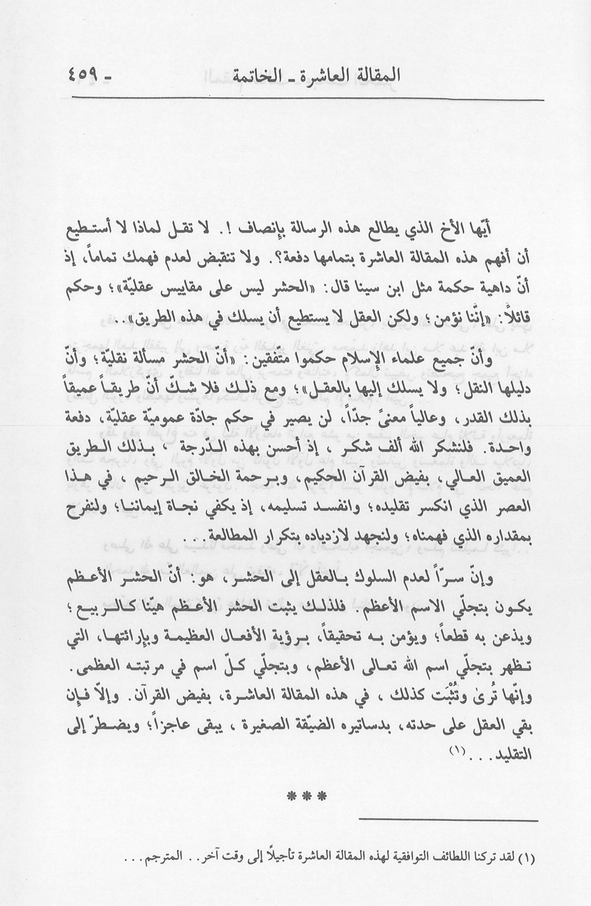 المقالة العاشرة - الخاتمة - ٤٥٩
أيّها الأخ الذي يطالع هذه الرسالة بإنصاف !. لا تقـل لماذا لا أستـطيع
أن أفهم هذه المقالة العاشرة بتمامها دفعة؟. ولا تنقبض لعدم فهمك تماماً، إذ
أنّ داهية حكمة مثل ابن سينا قال: «الحشر ليس على مقاييس عقليّة»؛ وحكم
قائلاً: «إنّنا نؤمن؛ ولكن العقل لا يستطيع أن يسلك في هذه الطريق»..
وأنّ جميع علماء الإسلام حكموا متفقين: «أنّ الحشر مسألة نقليّة؛ وأنّ
دليلها النقل؛ ولا يسلك إليها بالعقل»؛ ومع ذلـك فلا شـكّ أنّ طريقـاً عميقاً
بذلك القدر، وعالياً معنىً جدّاً، لن يصير في حكم جادّة عموميّة عقليّة، دفعة
واحـدة. فلنشكر الله ألف شكـر ، إذ أحسن بهـذه الـدّرجة ، بـذلك الـطريق
العميق العـالي، بفيض القرآن الحكيم، وبـرحمة الخـالق الـرحيم ، في هـذا
العصر الذي انكسر تقليده؛ وانفسد تسليمه، إذ يكفي نجـاة إيماننـا؛ ولنفرح
بمقداره الذي فهمناه؛ ولنجهد لازدياده بتكرار المطالعة...
وإنّ سـرّاً لعدم السلوك بـالعقل إلى الحشـر، هو: أنّ الحشـر الأعظـم
يكـون بتجلّي الاسم الأعظم. فلذلـك يثبت الحشر الأعـظم هيّنا كـالـربيـع؛
ويذعن به قطعاً؛ ويؤمن بـه تحقيقـاً، بـرؤية الأفعـال العظيمـة وبإرائتهـا، التي
تـظهر بتجلّي اسم الله تعـالى الأعظم، وبتجلّي كـلّ اسم في مرتبتـه العظمى.
وإنّهـا تُرىٰ وتُثْبَت كذلك ، في هـذه المقالـة العاشـرة، بفيض القرآن. وإلّا فـإن
بقي العقل على حدته، بدساتيره الضيّقة الصغيرة ، يبقى عاجزاً؛ ويضطـرّ إلى
التقليد... (١)
***
(١) لقد تركنا اللطائف التوافقية لهذه المقالة العاشرة تأجيلاً إلى وقت آخر.. المترجم...